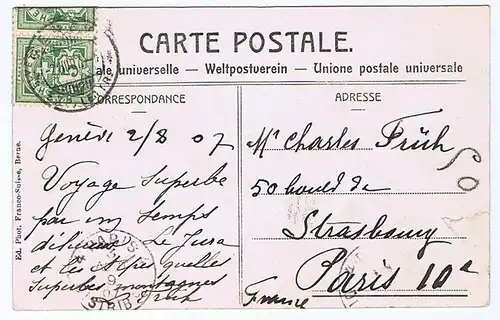 CARTE POSTALE.
ale universelle — Weltpostverein — Unione postale universale
CORRESPONDANCE
ADRESSE
Genève 2/8 07
Voyage superbe
par un temps
délicieux Le Jura
et les Alpes quelles
superbes montagnes
Früh
Mr Charles Früh
50 bould de
Strasbourg
Paris 10e
France
Ed. Phot. Franco-Suisse, Berne.